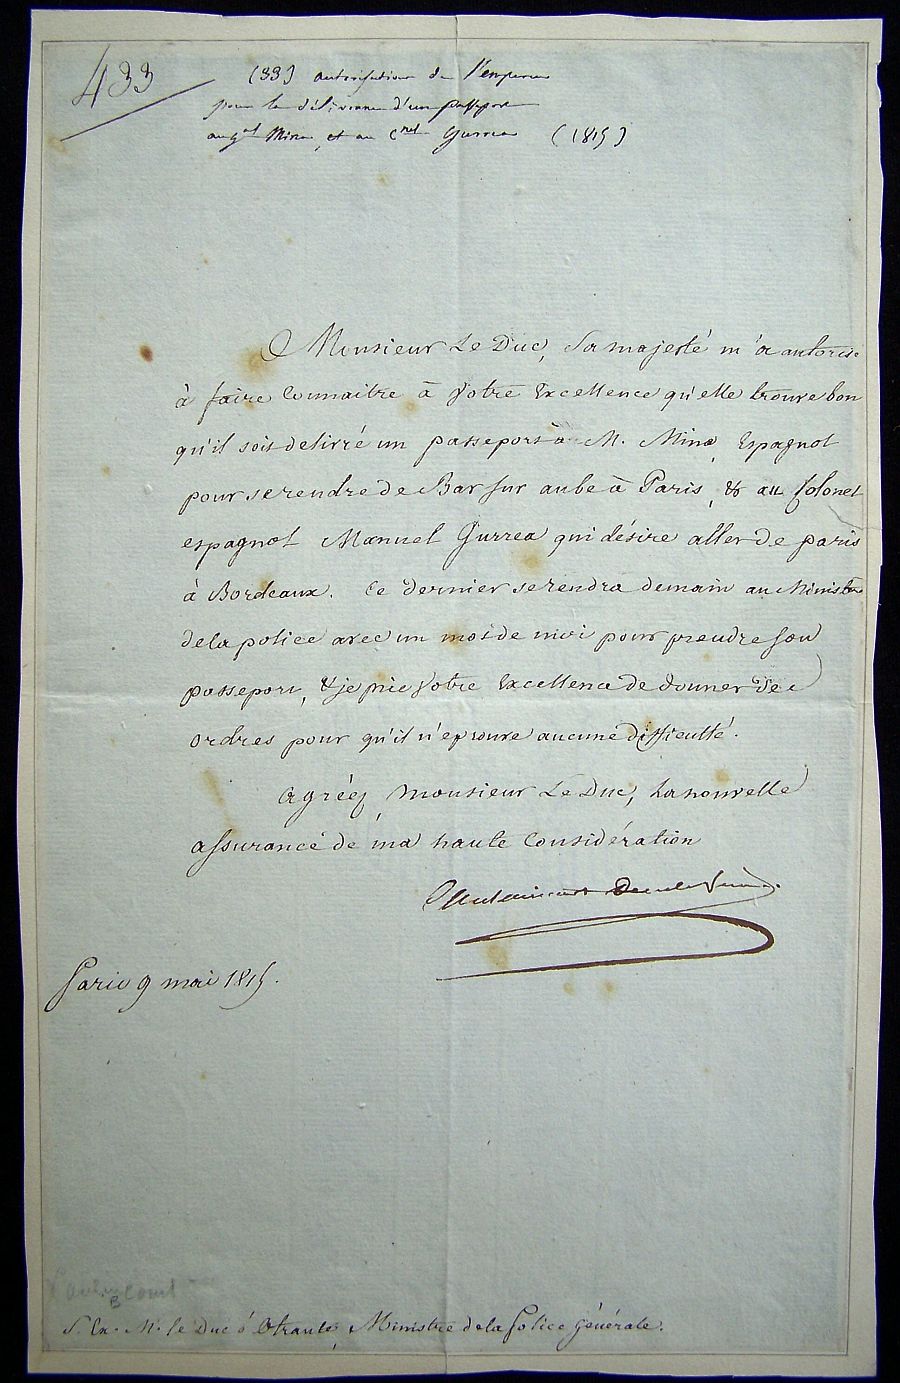 433
(33) autorisation de l'empereur
pour la délivrance d'un passeport
au gal Mina, et au cnel Gurrea (1815)
Monsieur Le Duc, Sa majesté m'a autorisé
à faire Connaitre à Votre Excellence qu'elle trouve bon
qu'il soit délivré un passeport à M. Mina, Espagnol
pour se rendre de Bar sur aube à Paris, & au Colonel
espagnol Manuel Gurrea qui désire aller de paris
à Bordeaux. Ce dernier se rendra demain au Ministère
de la police avec un mot de moi pour prendre son
passeport, & je prie Votre Excellence de donner des
ordres pour qu'il n'éprouve aucune difficulté.
Agréez, Monsieur Le Duc, la nouvelle
assurance de ma haute Considération
Caulaincourt Duc de Vicence
Paris 9 mai 1815.
Caulaincourt
S. Ex. M. le Duc d'Otrante, Ministre de la Police Générale.